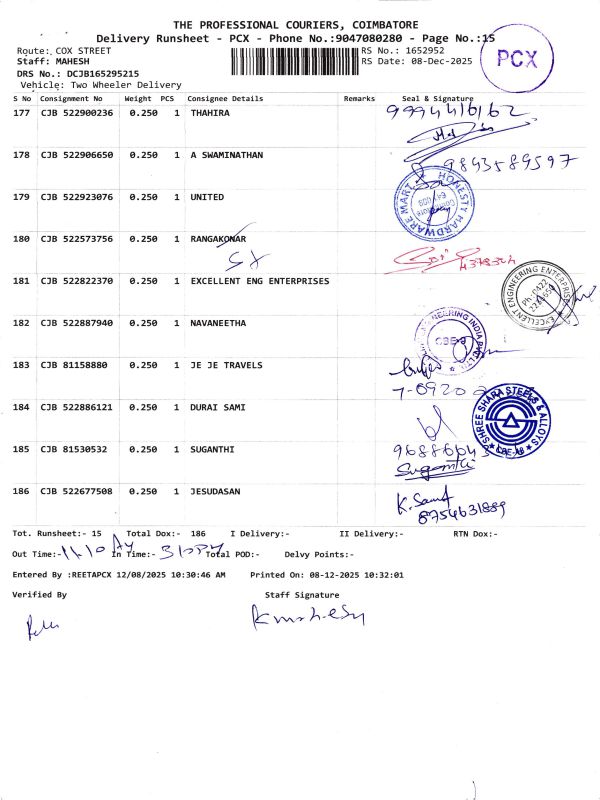 THE PROFESSIONAL COURIERS, COIMBATORE
Delivery Runsheet - PCX - Phone No.:9047080280 - Page No.:15
PCX
Route: COX STREET
RS No.: 1652952
Staff: MAHESH
RS Date: 08-Dec-2025
DRS No.: DCJB165295215
Vehicle: Two Wheeler Delivery
S No Consignment No Weight PCS Consignee Details Remarks Seal & Signature
177 CJB 522900236 0.250 1 THAHIRA 9994416162
178 CJB 522906650 0.250 1 A SWAMINATHAN 9843589597
179 CJB 522923076 0.250 1 UNITED
HONESTY HARDWARE MART
180 CJB 522573756 0.250 1 RANGAKONAR
181 CJB 522822370 0.250 1 EXCELLENT ENG ENTERPRISES
EXCELLENT ENGINEERING ENTERPRISES
Ph: 0422
182 CJB 522887940 0.250 1 NAVANEETHA
ENGINEERING INDIA PVT. LTD.
183 CJB 81158880 0.250 1 JE JE TRAVELS
184 CJB 522886121 0.250 1 DURAI SAMI
SHREE SHARA STEELS & ALLOYS
185 CJB 81530532 0.250 1 SUGANTHI
Suganthi
186 CJB 522677508 0.250 1 JESUDASAN
8754631889
Tot. Runsheet:- 15 Total Dox:- 186 I Delivery:- II Delivery:- RTN Dox:-
Out Time:- 11.10 In Time:- Total POD:- Delvy Points:-
Entered By :REETAPCX 12/08/2025 10:30:46 AM Printed On: 08-12-2025 10:32:01
Verified By Staff Signature